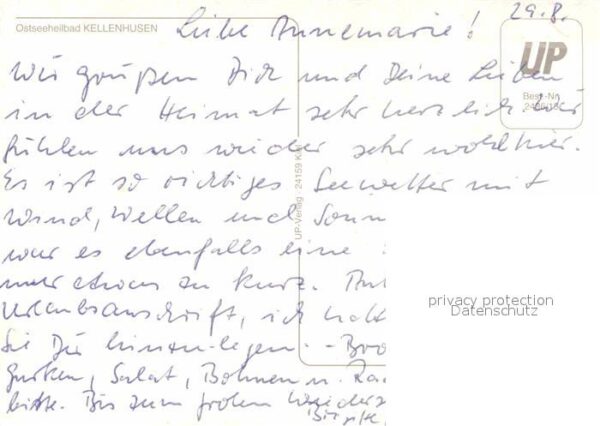 29.8.
Ostseeheilbad KELLENHUSEN
Liebe Annemarie!
UP
Best.-Nr.
Wir grüßen Dich und Deine Lieben
in der Heimat sehr herzlich. Wir
fühlen uns wieder sehr wohl hier.
Es ist so richtiges Seewetter mit
Wind, Wellen und Sonn
war es ebenfalls eine
nur etwas zu kurz.
Urlaubsanschrift, ich hatt
Sie Dir hinzulegen. - Bro
Gurken, Salat, Bohnen u.
bitte. Bis zum frohen Wieders
UP-Verlag 24159
privacy protection
Datenschutz